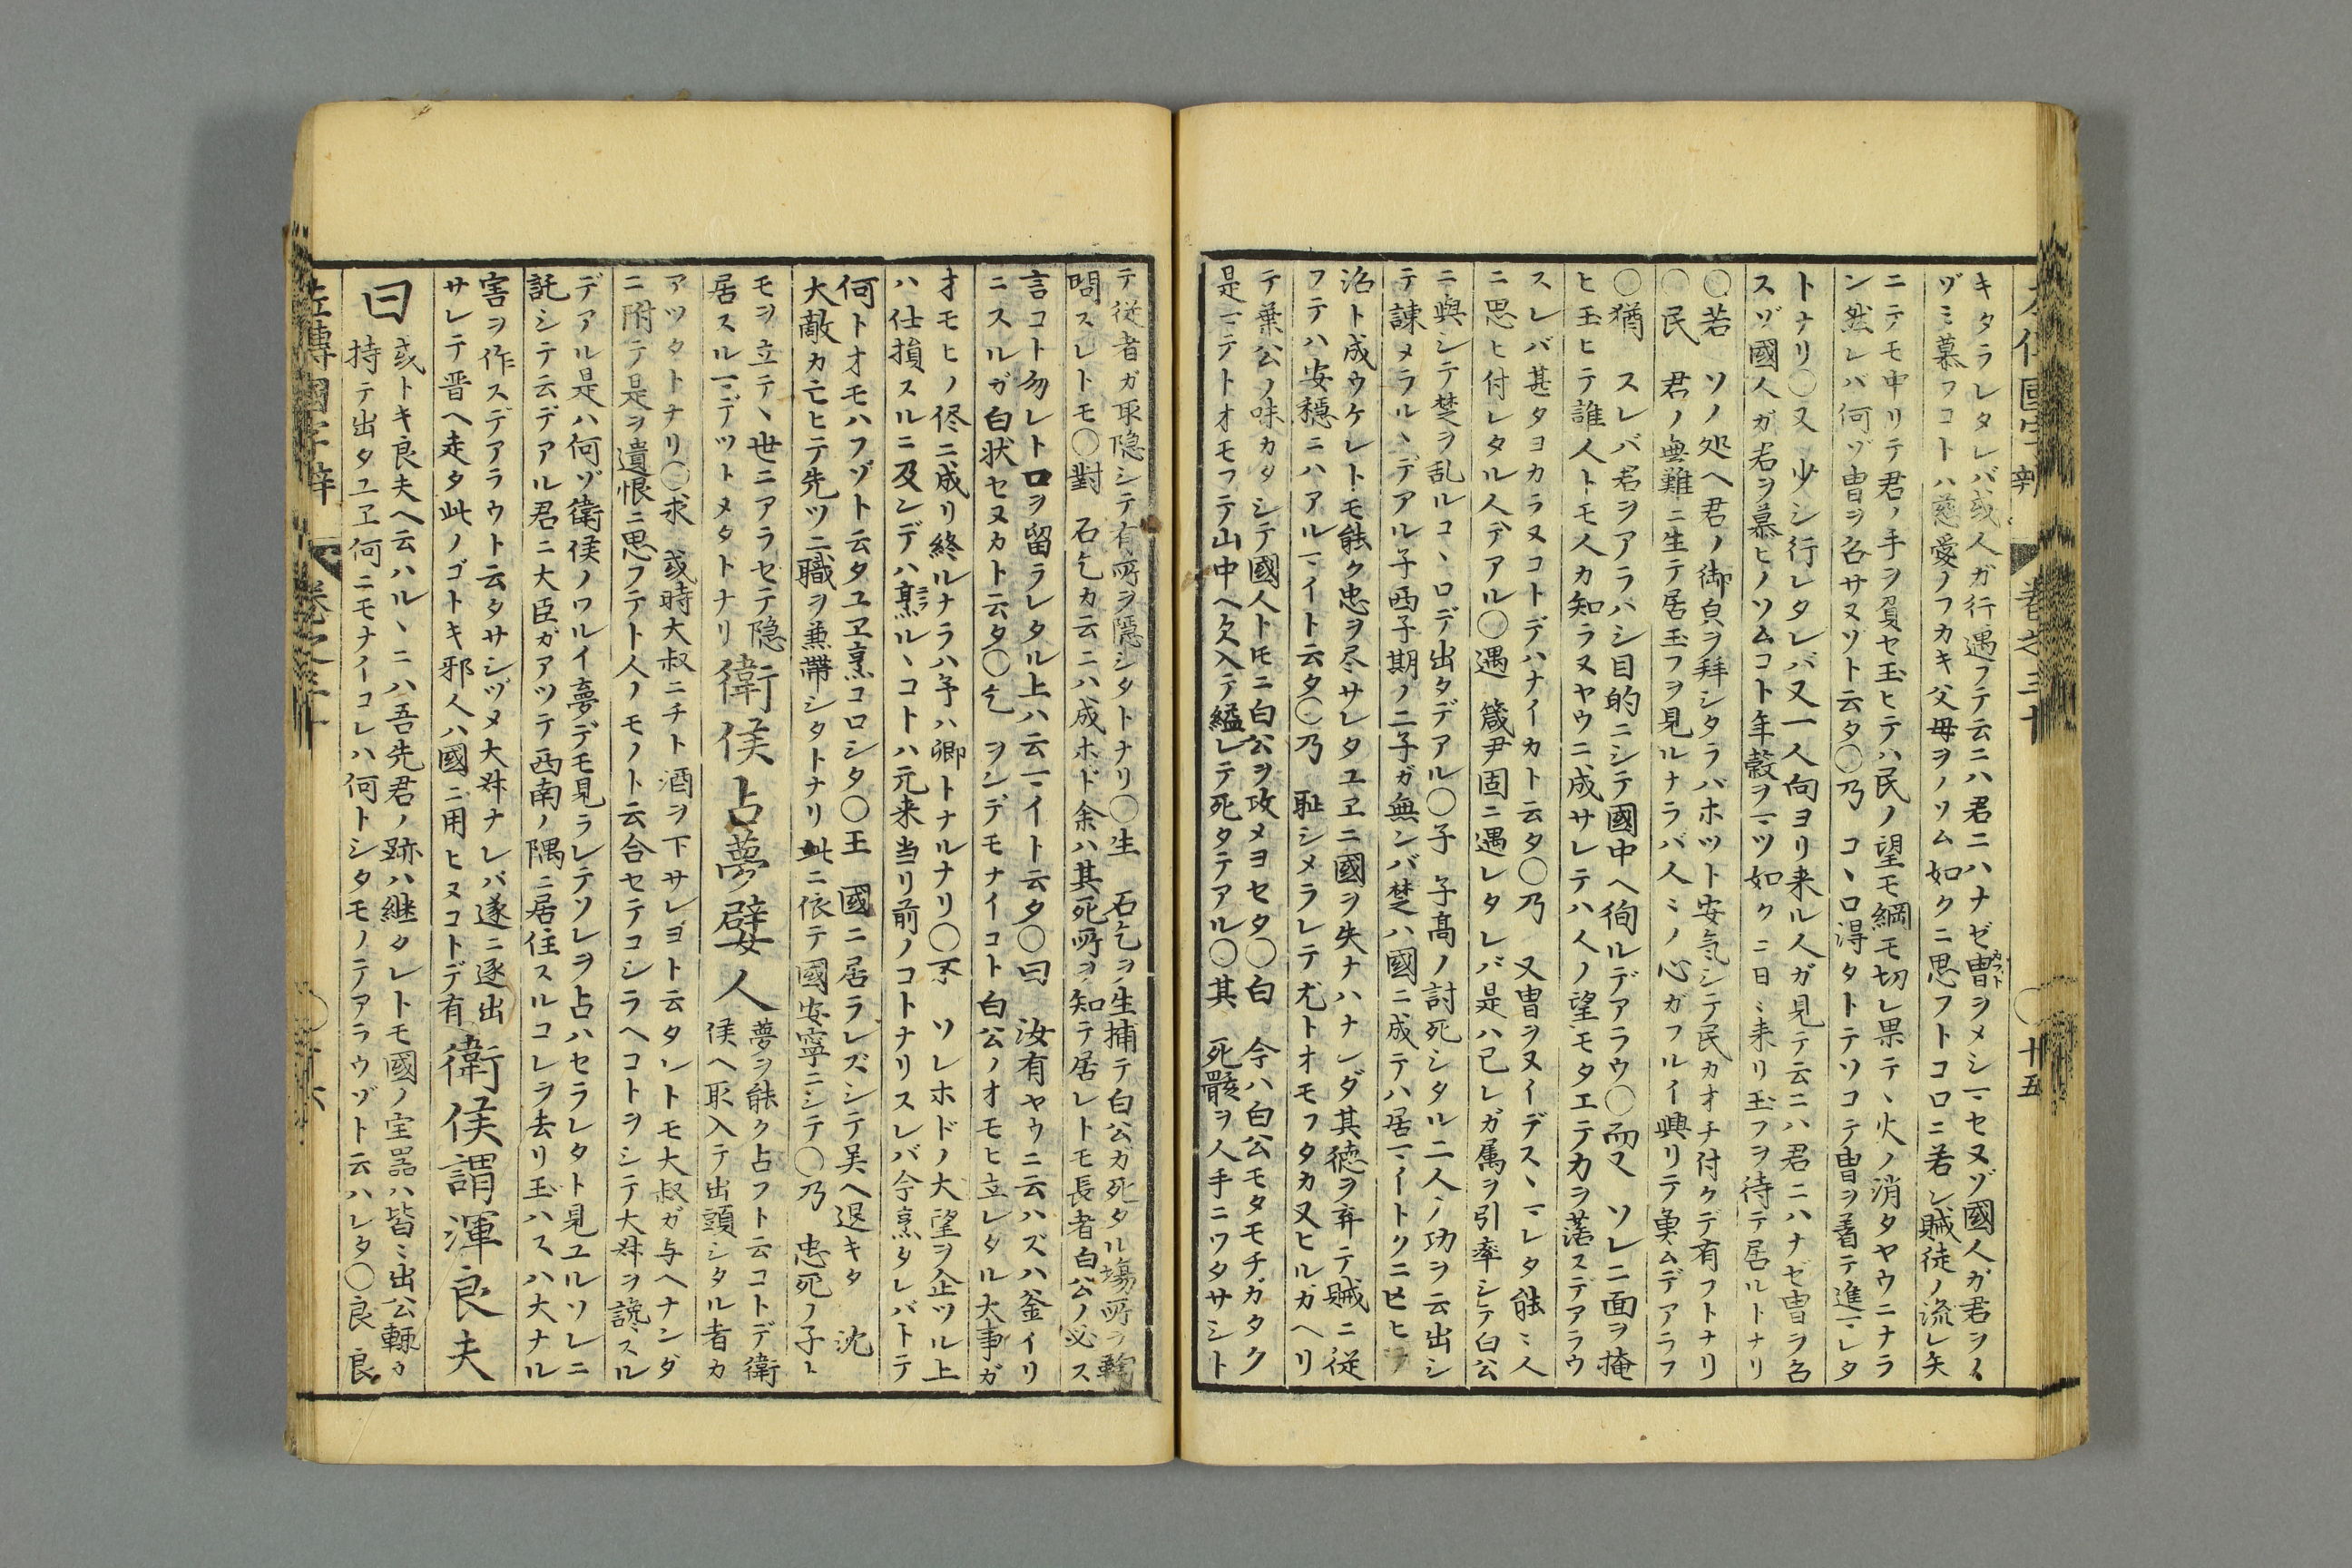 キタラレタレバ或人ガ行遇フテ云ニハ君ニハナゼ冑カブトヲメシマセヌゾ國人ガ君ヲイ
ヅミ慕フコトハ慈愛ノフカキ父母ヲノソム如クニ思フトコロニ若シ賊徒ノ流レ矢
ニテモ中リテ君ノ手ヲ負セ玉ヒテハ民ノ望モ綱モ切レ果テヽ火ノ消タヤウニナラ
ン然レバ何ゾ冑ヲ召サヌソト云タ〇乃 コヽロ得タトテソコテ冑ヲ着テ進マレタ
トナリ〇又 少シ行レタレバ又一人向ヨリ来ル人ガ見テ云ニハ君ニハナゼ冑ヲ召
スゾ國人ガ君ヲ慕ヒノソムコト年穀ヲマツ如クニ日ミ来リ玉フヲ待テ居ルトナリ
〇若 ソノ処ヘ君ノ御皃ヲ拜シタラバホツト安気シテ民カオチ付ケデ有フトナリ
〇民 君ノ無難ニ生テ居玉フヲ見ルナラバ人ミノ心ガフルイ興リテ勇ムデアラフ
〇猶 スレバ君ヲアラハシ目的ニシテ國中ヘ徇ルデアラウ〇而又 ソレニ面ヲ掩
ヒ玉ヒテ誰人トモ人カ知ラヌヤウニ成サレテハ人ノ望モタエテ力ヲ落スデアラウ
スレバ甚タヨカラヌコトデハナイカト云タ〇乃 又冑ヲヌイデスヽマレタ能ミ人
ニ思ヒ付レタル人デアル〇遇 箴尹固ニ遇レタレバ是ハ已レガ属ヲ引率シテ白公
ニ與シテ楚ヲ乱ルコヽロデ出タデアル〇子 子高ノ討死シタル二人ノ功ヲ云出シ
テ諫メラルヽデアル子西子期ノ二子ガ無ンバ楚ハ國ニ成テハ居マイトクニ亡ヒテ
治ト成ウケレトモ能ク忠ヲ尽サレタユヱニ國ヲ失ナハナンダ其徳ヲ弃テ賊ニ従
フテハ安穏ニハアルマイト云タ〇乃 耻シメラレテ尤トオモフタカ又ヒルカヘリ
テ葉公ノ味カタシテ國人トモニ白公ヲ攻メヨセタ〇白 今ハ白公モタモチガタク
是マテトオモフテ山中ヘ欠入テ縊レテ死タテアル〇其 死骸ヲ人手ニワタサシト
卷之三十 〇 十五
テ従者ガ取隠シテ有所ヲ隱シタトナリ〇生 石乞ヲ生捕テ白公ガ死タル塲所ヲ鞫
問スレトモ〇對 石乞カ云ニハ成ホド余ハ其死所ヲ知テ居レトモ長者白公ノ必ス
言コト勿レト口ヲ留ラレタル上ハ云マイト云タ〇曰 汝有ヤウニ云ハズハ釜イリ
ニスルガ白状セヌカト云タ〇乞 ヲンデモナイコト白公ノオモヒ立レタル大事ガ
オモヒノ侭ニ成リ終ルナラハ予ハ卿トナルナリ〇不 ソレホドノ大望ヲ企ツル上
ハ仕損スルニ及ンデハ烹ニラルヽコトハ元来当リ前ノコトナリスレバ今烹タレバトテ
何トオモハフゾト云タユヱ烹コロシタ〇王 國ニ居ラレズシテ吴ヘ退キタ 沈
大敵カ亡ヒテ先ツ二職ヲ兼帶シタトナリ此ニ依テ國安寧ニシテ〇乃 忠死ノ子ト
モヲ立テヽ世ニアラセテ隐
居スルマデツトメタトナリ
衛侯占夢嬖人
夢ヲ能ク占フト云コトデ衛
侯ヘ取入テ出頭シタル者カ
アツタトナリ〇求 或時大叔ニチト酒ヲ下サレヨト云タントモ大叔ガ与ヘナンダ
ニ附テ是ヲ遺恨ニ思フテト人ノモノト云合セテコシラヘコトヲシテ大叔ヲ讒スル
デアル是ハ何ゾ衛侯ノワルイ夢デモ見ラレテソレヲ占ハセラレタト見ユルソレニ
託シテ云デアル君ニ大臣ガアツテ西南ノ隅ニ居住スルコレヲ去リ玉ハスハ大ナル
害ヲ作スデアラウト云タサシヅメ大叔ナレバ遂ニ逐出
サレテ晋ヘ走タ此ノゴトキ邪人ハ國ニ用ヒヌコトデ有
衛侯謂渾良夫
曰
或トキ良夫ヘ云ハルヽニハ吾先君ノ跡ハ継タレトモ國ノ宝噐ハ皆ミ出公輙カ
持テ出タユヱ何ニモナイコレハ何トシタモノテアラウゾト云ハレタ〇良 良
左傳國字辯 卷之三十